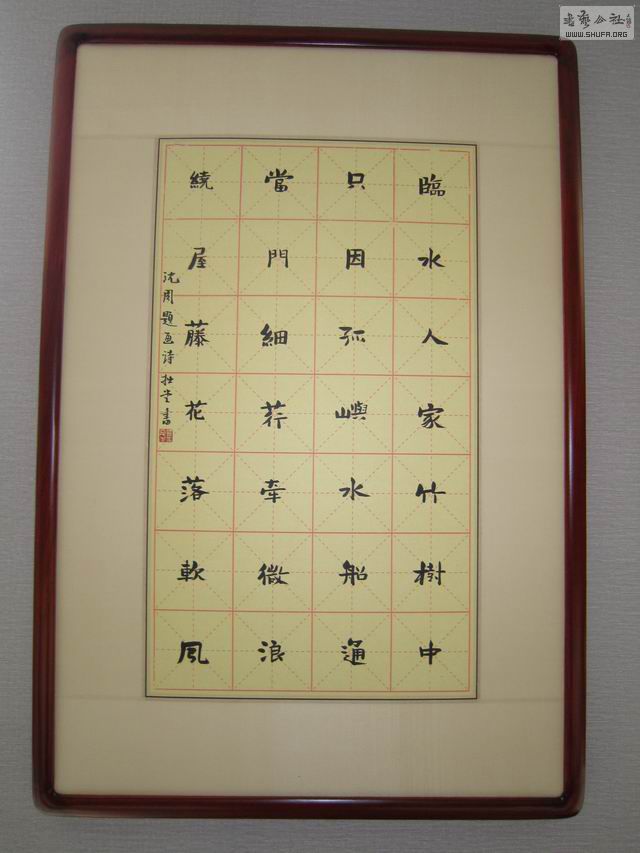 臨水人家竹樹中
只因孤嶼水船通
當門細荇牽微浪
繞屋藤花落軟風
沈周题画诗
书艺公社
WWW.SHUFA.ORG